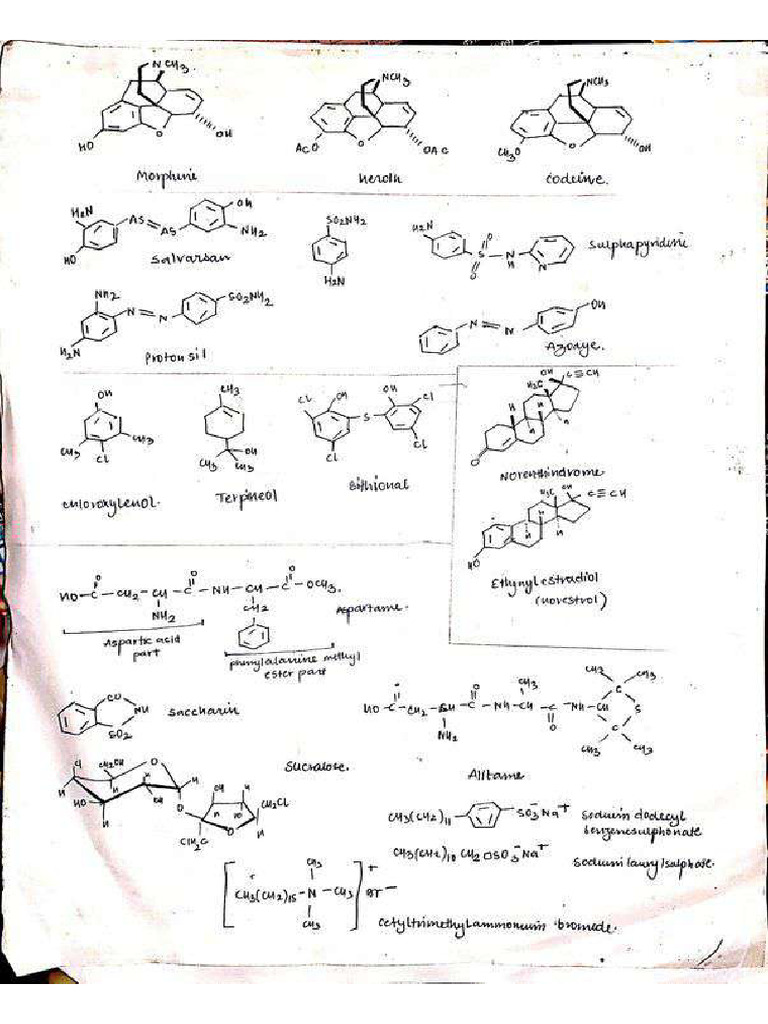 N CH3
NCH3
NCH3
HO
O
OH
ACO
O
OAC
CH3O
O
OH
Morphine
heroin
Codeine
H2N
HO
AS=AS
OH
NH2
Salvarsan
SO2NH2
H2N
H2N
O
S
O
N
H
N
Sulphapyridine
NH2
H2N
N=N
SO2NH2
Protonsil
N=N
OH
Azodye.
OH
CH3
CH3
Cl
Chloroxylenol.
CH3
OH
CH3
CH3
Terpineol
Cl
OH
S
OH
Cl
Cl
Cl
Bithional
OH
C≡CH
H3C
H
H
H
O
Norethindrone
H3C
OH
C≡CH
H
H
HO
Ethynylestradiol
(novestrol)
O
O
O
HO-C-CH2-CH-C-NH-CH-C-OCH3.
NH2
CH2
Aspartame.
Aspartic acid
part
phenylalanine methyl
ester part
CO
NH
SO2
Saccharin
O
O
CH3
CH3
CH3
HO-C-CH2-CH-C-NH-CH-C-NH-CH
C
S
C
NH2
O
CH3
CH3
Alitame
Cl
OH
O
H
H
HO
H
H
OH
O
OH
H
H
HO
CH2Cl
O
H
ClH2C
Sucralose.
CH3(CH2)11
SO3-Na+
Sodium dodecyl
benzenesulphonate
CH3(CH2)10 CH2 OSO3-Na+
Sodium laurylsulphate.
CH3
CH3(CH2)15-N-CH3
CH3
+
Br-
Cetyltrimethylammonium bromide.